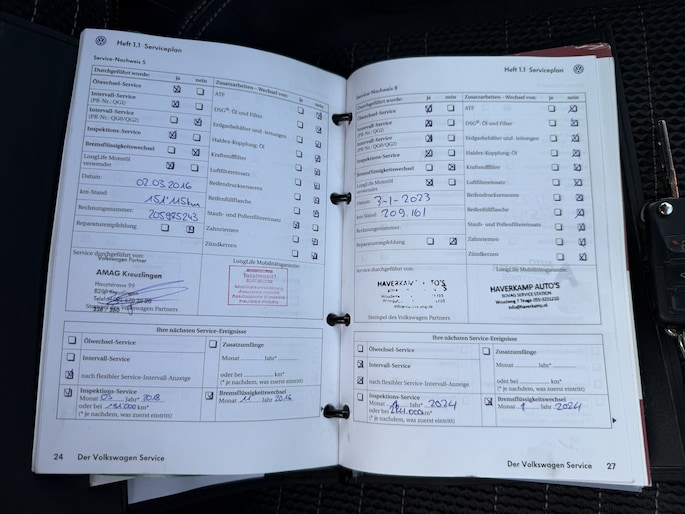 Heft 1.1 Serviceplan
Service-Nachweis 5
Durchgeführt wurde: ja nein
Ölwechsel-Service
Intervall-Service
(PR-Nr.: QG1)
Intervall-Service
(PR-Nr.: QG0/QG2)
Inspektions-Service
Bremsflüssigkeitswechsel
LongLife Motoröl
verwendet
Datum: 02.03.2016
km-Stand: 151'115km
Rechnungsnummer: 205985243
Reparaturempfehlung
Zusatzarbeiten - Wechsel von: ja nein
ATF
DSG®-Öl und Filter
Erdgasbehälter und -leitungen
Haldex-Kupplung: Öl
Kraftstofffilter
Luftfiltereinsatz
Reifendrucksensoren
Reifenfüllflasche
Staub- und Pollenfiltereinsatz
Zahnriemen
Zündkerzen
Service durchgeführt von:
Volkswagen Partner
AMAG Kreuzlingen
Hauptstrasse 99
8280 Kreuzlingen
LongLife Mobilitätsgarantie:
Totalmobil!
Ihre nächsten Service-Ereignisse
Ölwechsel-Service
Intervall-Service
nach flexibler Service-Intervall-Anzeige
Inspektions-Service
Monat 03 Jahr* 2018
oder bei 181.000 km*
(* je nachdem, was zuerst eintritt)
Zusatzumfänge
Monat Jahr*
oder bei km*
(* je nachdem, was zuerst eintritt)
Bremsflüssigkeitswechsel
Monat 11 Jahr 2016
24 Der Volkswagen Service
Heft 1.1 Serviceplan
Service-Nachweis 8
Durchgeführt wurde: ja nein
Ölwechsel-Service
Intervall-Service
(PR-Nr.: QG1)
Intervall-Service
(PR-Nr.: QG0/QG2)
Inspektions-Service
Bremsflüssigkeitswechsel
LongLife Motoröl
verwendet
Datum: 3-1-2023
km-Stand: 209.161
Rechnungsnummer:
Reparaturempfehlung
Zusatzarbeiten - Wechsel von: ja nein
ATF
DSG®-Öl und Filter
Erdgasbehälter und -leitungen
Haldex-Kupplung: Öl
Kraftstofffilter
Luftfiltereinsatz
Reifendrucksensoren
Reifenfüllflasche
Staub- und Pollenfiltereinsatz
Zahnriemen
Zündkerzen
Service durchgeführt von:
HAVERKAMP AUTO'S
Stempel des Volkswagen Partners
LongLife Mobilitätsgarantie:
HAVERKAMP AUTO'S
BOVAG SERVICE STATION
info@haverkamp.nl
Ihre nächsten Service-Ereignisse
Ölwechsel-Service
Intervall-Service
nach flexibler Service-Intervall-Anzeige
Inspektions-Service
Monat 1 Jahr* 2024
oder bei km*
(* je nachdem, was zuerst eintritt)
Zusatzumfänge
Monat Jahr*
oder bei km*
(* je nachdem, was zuerst eintritt)
Bremsflüssigkeitswechsel
Monat 1 Jahr 2024
Der Volkswagen Service 27